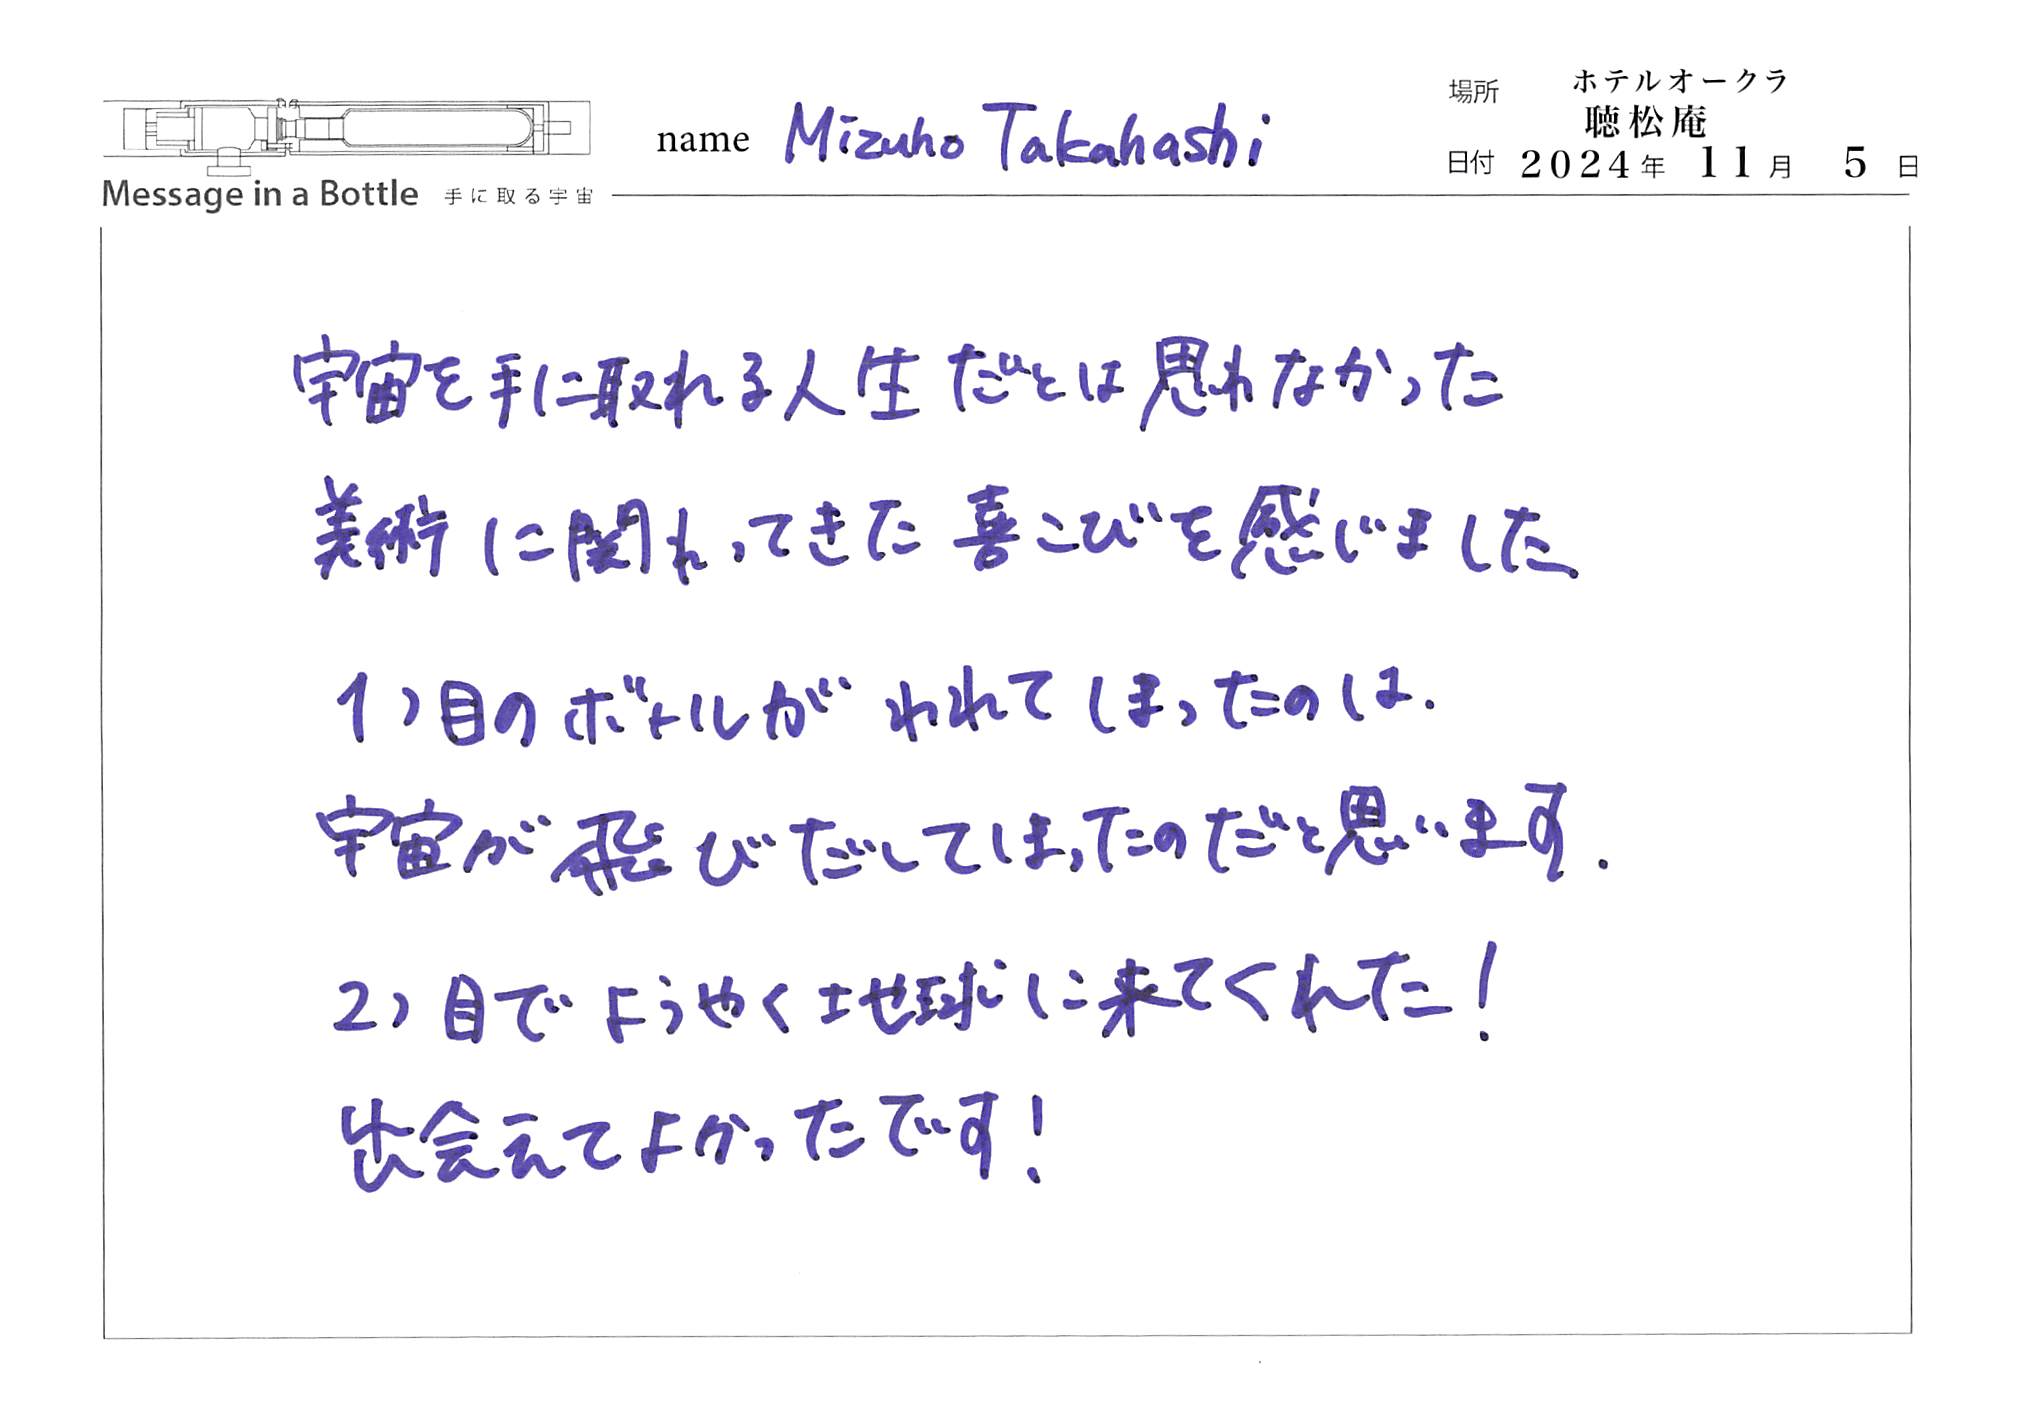 Message in a Bottle 手に取る宇宙
name Mizuho Takahashi
場所 ホテルオークラ
聴松庵
日付 2024年 11月 5日
宇宙を手に取れる人生だとは思わなかった
美術に関わってきた喜こびを感じました
1つ目のボトルがわれてしまったのは.
宇宙が飛びだしてしまったのだと思います.
2つ目でようやく地球に来てくれた!
出会えてよかったです!